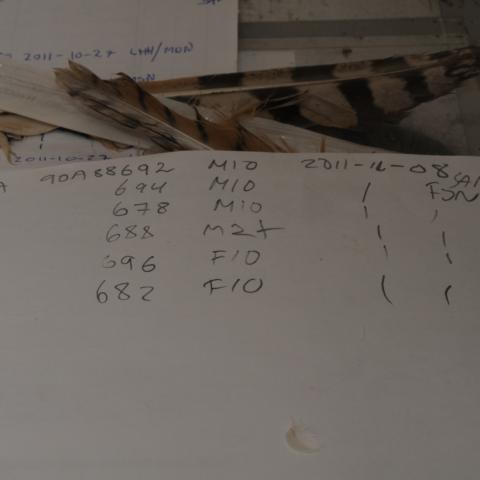 2011-10-27 LHH/MON
2011-10-27
90A88692 M10 2011-11-08
694 M10 / FJN
678 M10 / /
688 M2+ \ \
696 F10 \ \
682 F10 ( (